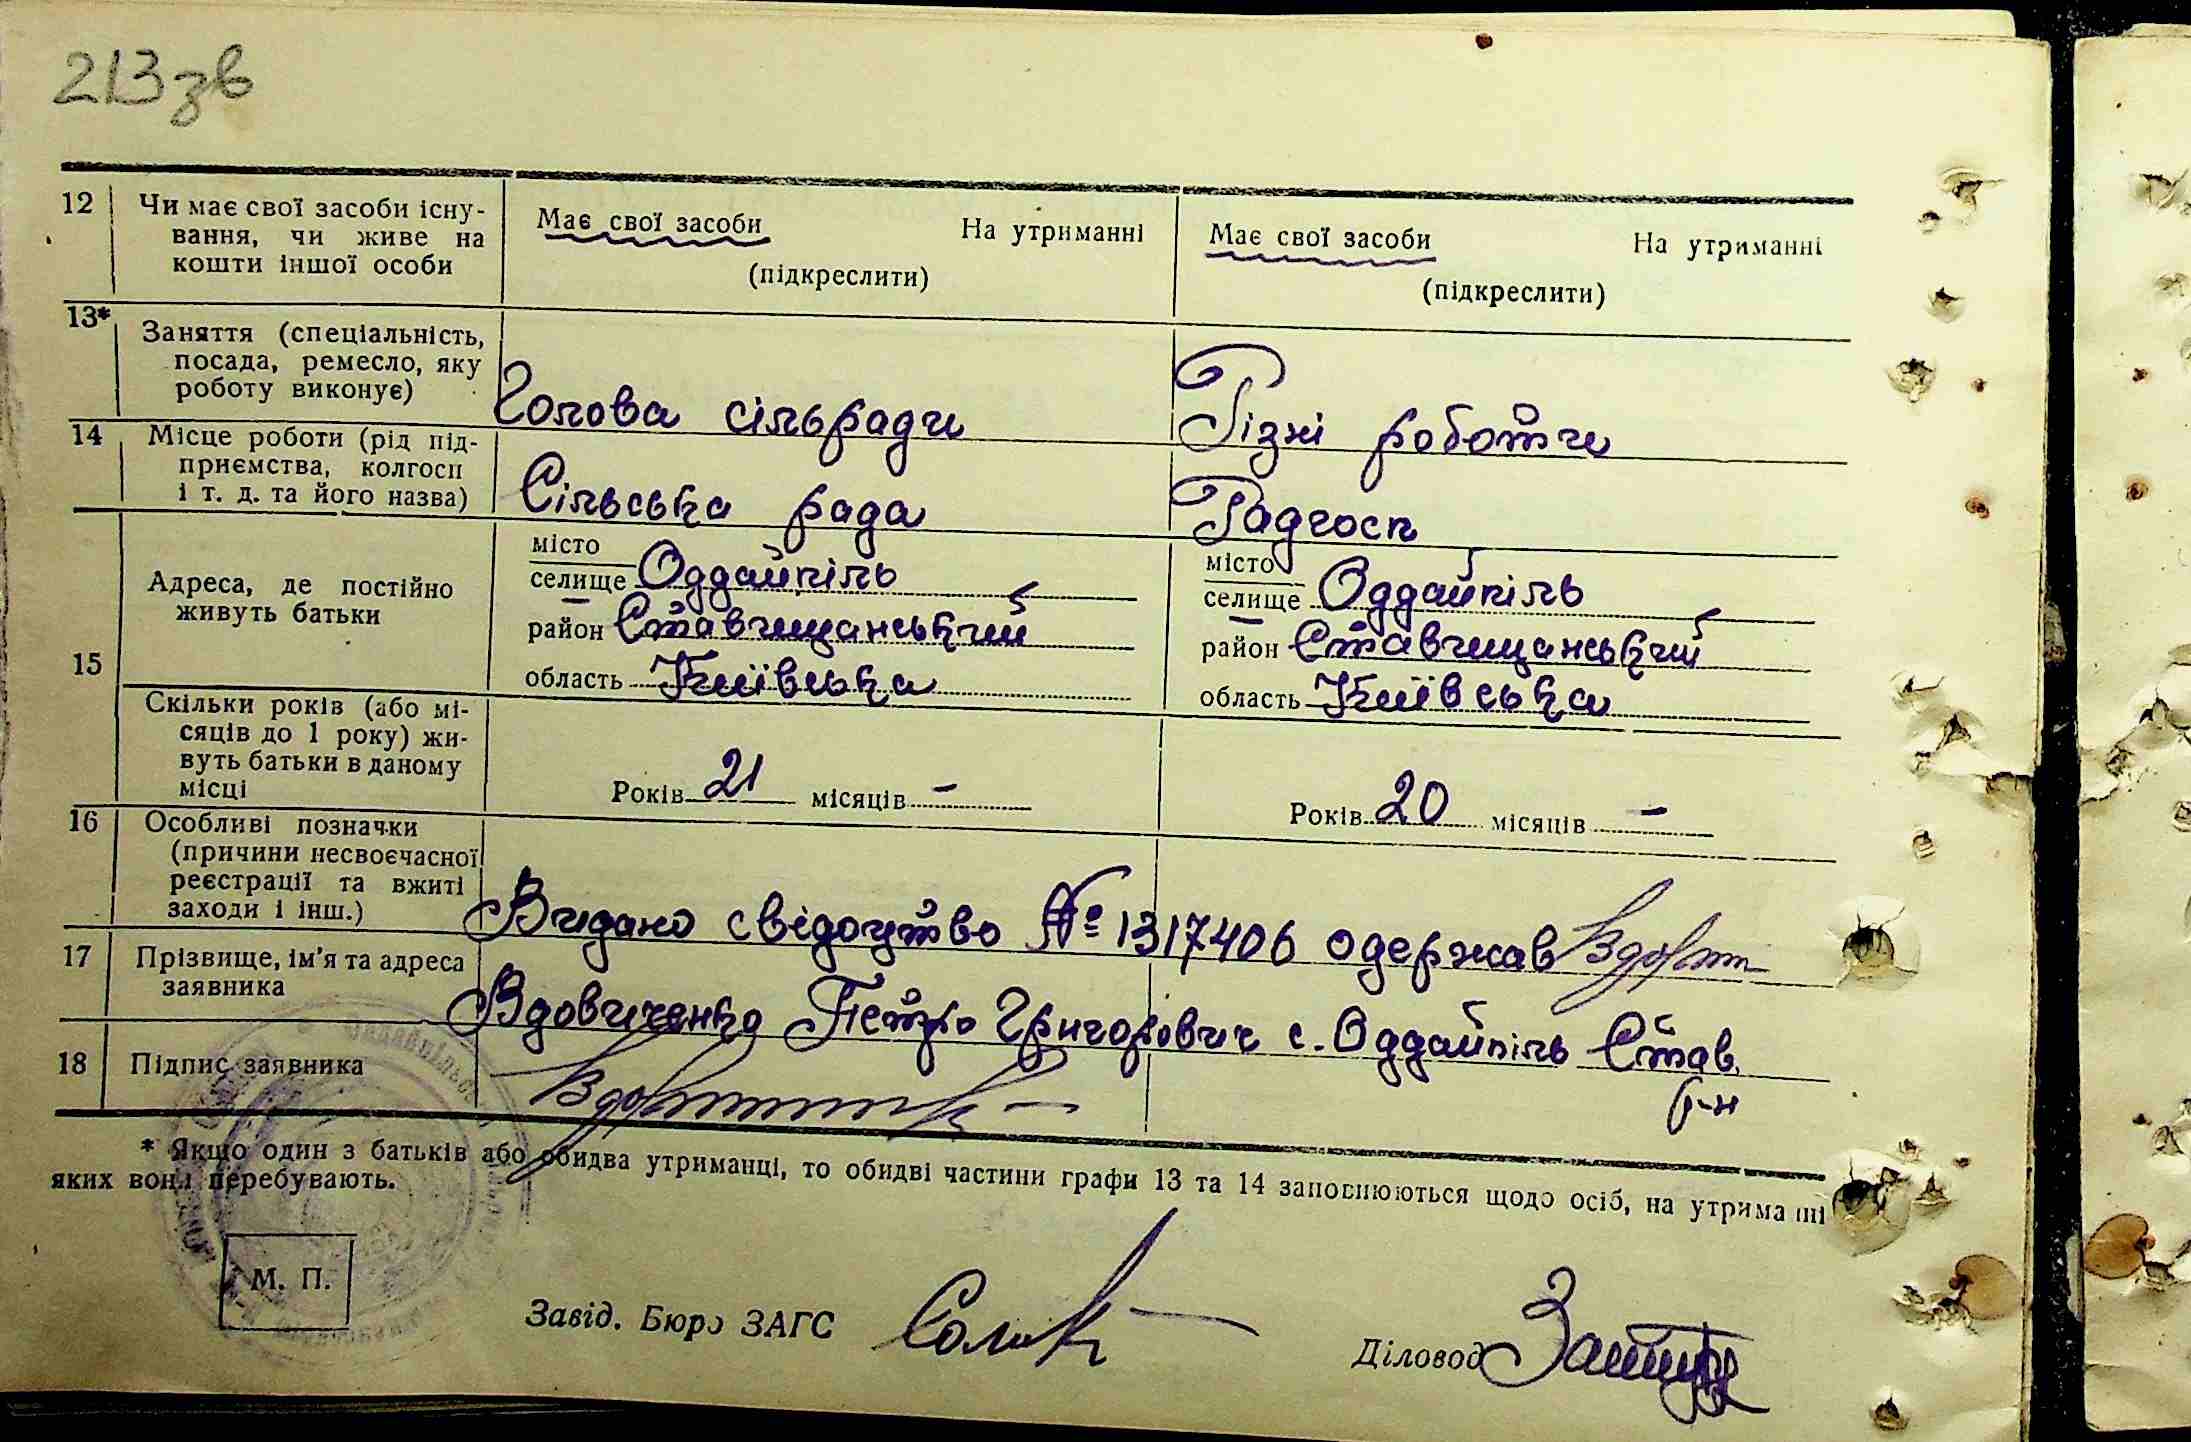 213зв
12 Чи має свої засоби існу-
вання, чи живе на
кошти іншої особи
Має свої засоби На утриманні
(підкреслити)
Має свої засоби На утриманні
(підкреслити)
13* Заняття (спеціальність,
посада, ремесло, яку
роботу виконує)
Голова сільради
Різні роботи
14 Місце роботи (рід під-
приємства, колгосп
і т. д. та його назва)
Сільська рада
Радгосп
15 Адреса, де постійно
живуть батьки
місто
селище Оддайпіль
район Ставищанський
область Київська
місто
селище Оддайпіль
район Ставищанський
область Київська
Скільки років (або мі-
сяців до 1 року) жи-
вуть батьки в даному
місці
Років 21 місяців –
Років 20 місяців –
16 Особливі позначки
(причини несвоєчасної
реєстрації та вжиті
заходи і інш.)
Видано свідоцтво № 1317406 одержав
17 Прізвище, ім'я та адреса
заявника
Вдовиченко Петро Григорович с. Оддайпіль Став.
р-н
18 Підпис заявника
* Якщо один з батьків або обидва утриманці, то обидві частини графи 13 та 14 заповнюються щодо осіб, на утриманні
яких вони перебувають.
М. П.
Завід. Бюро ЗАГС
Діловод